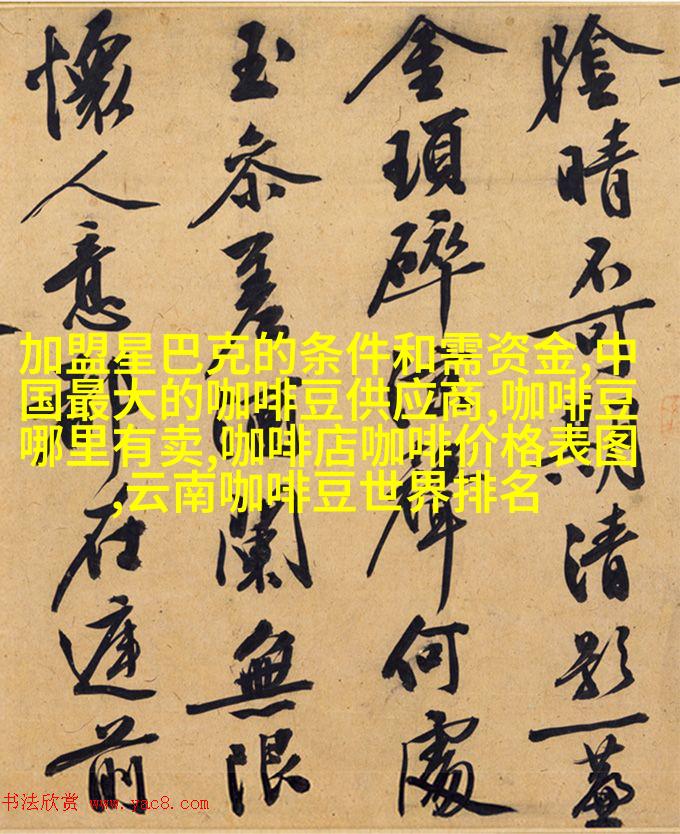 陰晴不可清影一
金瑣碎聲何處
玉參差闌無限
懷人意都在前
加盟星巴克的条件和需资金,中
国最大的咖啡豆供应商,咖啡豆
哪里有卖,咖啡店咖啡价格表图
,云南咖啡豆世界排名
书法欣赏 www.yac8.com